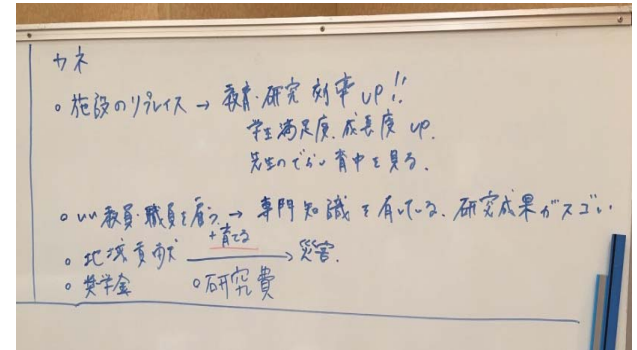 カネ
○施設のリプレイス → 教育・研究 効率 UP!!
学生満足度、成長度 UP.
先生のでかい背中を見る.
○いい教員・職員を雇う → 専門知識を有している、研究成果がスゴい.
+育てる
○地域貢献 → 災害.
○奨学金 ○研究費